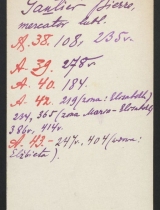 Saulier Pierre,
mercator libr.
A. 38. 108, 235v.
A. 39. 278v.
A. 40. 184.
A. 42. 219 (zona: Elisabeth)
254, 365 (zona Maria-Elisabeth)
386v, 414v.
A. 43.- 247v. 404 (uxor: